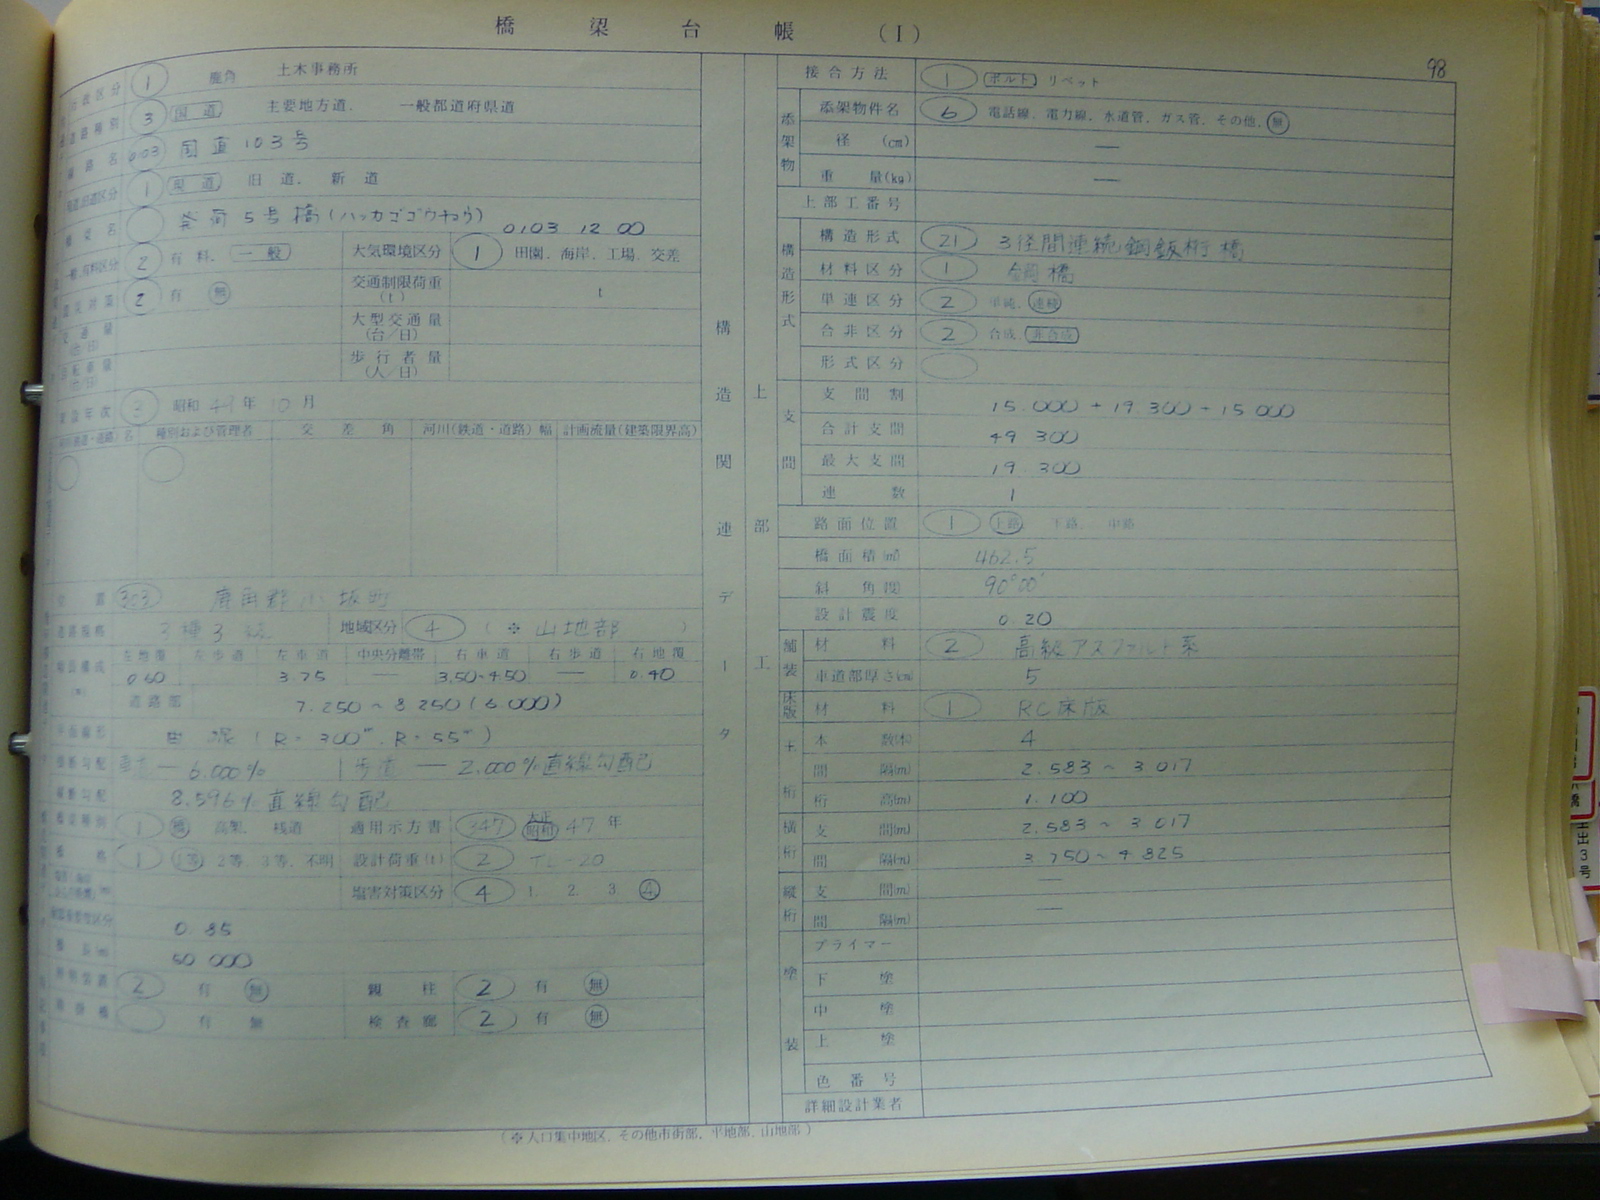 橋梁台帳（Ⅰ）
98
行政区分 1 鹿角 土木事務所
道路種別 3 国道 主要地方道、 一般都道府県道
路線名 0103 国道103号
現道,旧道区分 1 現道 旧道、 新道
橋梁名 発荷5号橋(ハッカゴゴウキョウ) 0103 12 00
一般,有料区分 2 有料、 一般 大気環境区分 1 田園、海岸、工場、交差
震災対策 2 有 無 交通制限荷重(t) t
交通量(台/日) 大型交通量(台/日)
自転車量(台/日) 歩行者量(人/日)
架設年次 3 昭和 49年 10月
河川(鉄道・道路)名 種別および管理者 交差角 河川(鉄道・道路)幅 計画流量(建築限界高)
位置 303 鹿角郡小坂町
道路規格 3種3級 地域区分 4 (※ 山地部 )
幅員構成(m) 左地覆 左歩道 左車道 中央分離帯 右車道 右歩道 右地覆
0.60 3.75 — 3.50~4.50 — 0.40
道路部 7.250 ~ 8.250 (6.000)
平面線形 曲線 (R=300m, R=55m)
横断勾配 車道 — 6.000% 歩道 — 2.000% 直線勾配
縦断勾配 8.596% 直線勾配
橋梁種別 1 橋 高架、 桟道 適用示方書 347 大正 昭和 47年
等格 1 1等 2等、3等、不明 設計荷重(t) 2 TL-20
塩害対策区分 4 1. 2. 3. 4
0.85
橋長(m) 50 000
照明装置 2 有 無 親柱 2 有 無
有 無 検査廊 2 有 無
(※人口集中地区、その他市街部、平地部、山地部)
構造関連データ
上部工
接合方法 1 ボルト リベット
添架物 添架物件名 6 電話線、電力線、水道管、ガス管、その他、無
径 (cm) —
重量(kg) —
上部工番号
構造形式 構造形式 21 3径間連続鋼鈑桁橋
材料区分 1 鋼橋
単連区分 2 単純、連続
合非区分 2 合成、非合成
形式区分
支間 支間割 15.000 + 19 300 + 15 000
合計支間 49 300
最大支間 19.300
連数 1
路面位置 1 上路 下路 中路
橋面積(㎡) 462.5
斜角度 90°00′
設計震度 0.20
舗装 材料 2 高級アスファルト系
車道部厚さ(cm) 5
床版 材料 1 RC床版
主桁 本数(本) 4
間隔(m) 2.583 ~ 3 017
桁高(m) 1.100
横桁 支間(m) 2.583 ~ 3 017
間隔(m) 3.750 ~ 4 825
縦桁 支間(m) —
間隔(m) —
塗装 プライマー
下塗
中塗
上塗
色番号
詳細設計業者